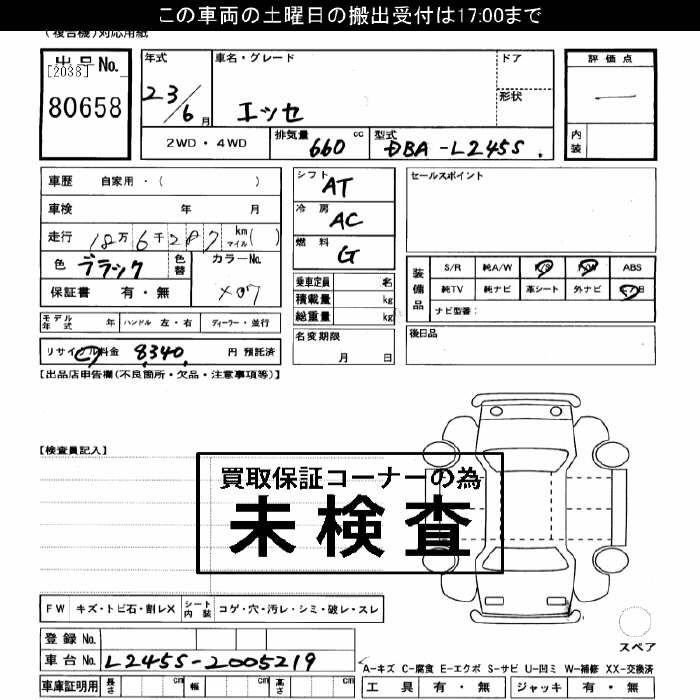 この車両の土曜日の搬出受付は17:00まで
(複合機)対応用紙
出品No.
[2038]
80658
年式
23/6月
車名・グレード
エッセ
ドア
形状
評価点
一
内装
2WD・4WD
排気量
660 cc
型式
DBA-L245S
車歴 自家用・( )
車検 年 月
走行 18万6千287 km マイル( )
色 ブラック
色替
カラーNo.
X07
保証書 有・無
モデル年式 年
ハンドル 左・右
ディーラー・並行
リサイクル料金 8340 円 預託済
シフト AT
冷房 AC
燃料 G
乗車定員 名
積載量 kg
総重量 kg
名変期限
月 日
セールスポイント
装備品
S/R 純A/W P/S P/W ABS
純TV 純ナビ 革シート 外ナビ エアB
ナビ型番:
後日品
【出品店申告欄(不良箇所・欠品・注意事項等)】
【検査員記入】
買取保証コーナーの為
未検査
FW キズ・トビ石・割レX
シート内装 コゲ・穴・汚レ・シミ・破レ・スレ
登録No.
車台No. L245S-2005219
車庫証明用 長さ cm 幅 cm 高さ cm
スペア
A-キズ C-腐食 E-エクボ S-サビ U-凹ミ W-補修 XX-交換済
工具 有・無 ジャッキ 有・無